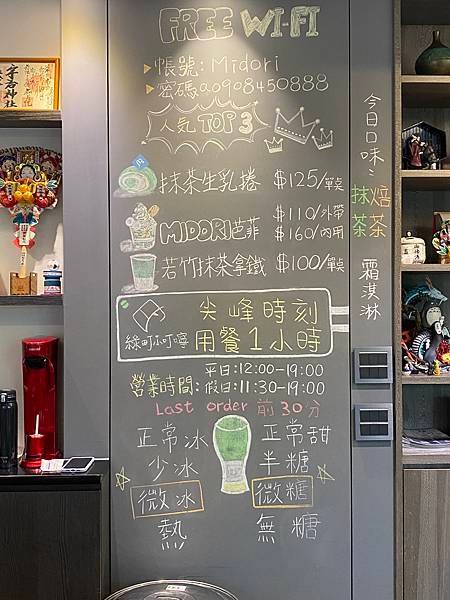 FREE WI-FI
帳號: Midori
密碼a0908450888
人氣 TOP 3
抹茶生乳捲 $125/單點
MIDORI芭菲 $110/外帶
$160/內用
若竹抹茶拿鐵 $100/單點
綠町叮嚀
尖峰時刻
用餐1小時
營業時間: 平日:12:00-19:00
假日:11:30-19:00
Last order 前30分
正常冰 正常甜
少冰 半糖
微冰 微糖
熱 無糖
今日口味:
抹茶
焙茶
霜淇淋